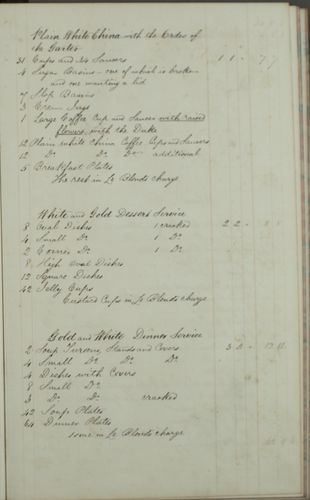 Plain White China with the Order of
the Garter
31 Cups and 20 Saucers
4 Sugar Basins - one of which is broken
and one wanting a lid
7 Slop Basins
3 Cream Jugs
1 Large Coffee Cup and Saucer with raised
flowers, with the Duke
12 Plain white China Coffee Cups and Saucers
12 Do Do Do additional
5 Breakfast Plates
The rest in Le Blonds charge
White and Gold Dessert Service
8 Oval Dishes 1 cracked
4 Small Do 1 Do
2 Corner Do 1 Do
8 High Oval Dishes
12 Square Dishes
42 Jelly Cups
Custard Cups in Le Blonds charge
Gold and White Dinner Service
2 Soup Turreens, Stands and Covers
4 Small Do Do Do
4 Dishes with Covers
8 Small Do
3 Do Do cracked
42 Soup Plates
64 Dinner Plates
some in Le Blonds charge